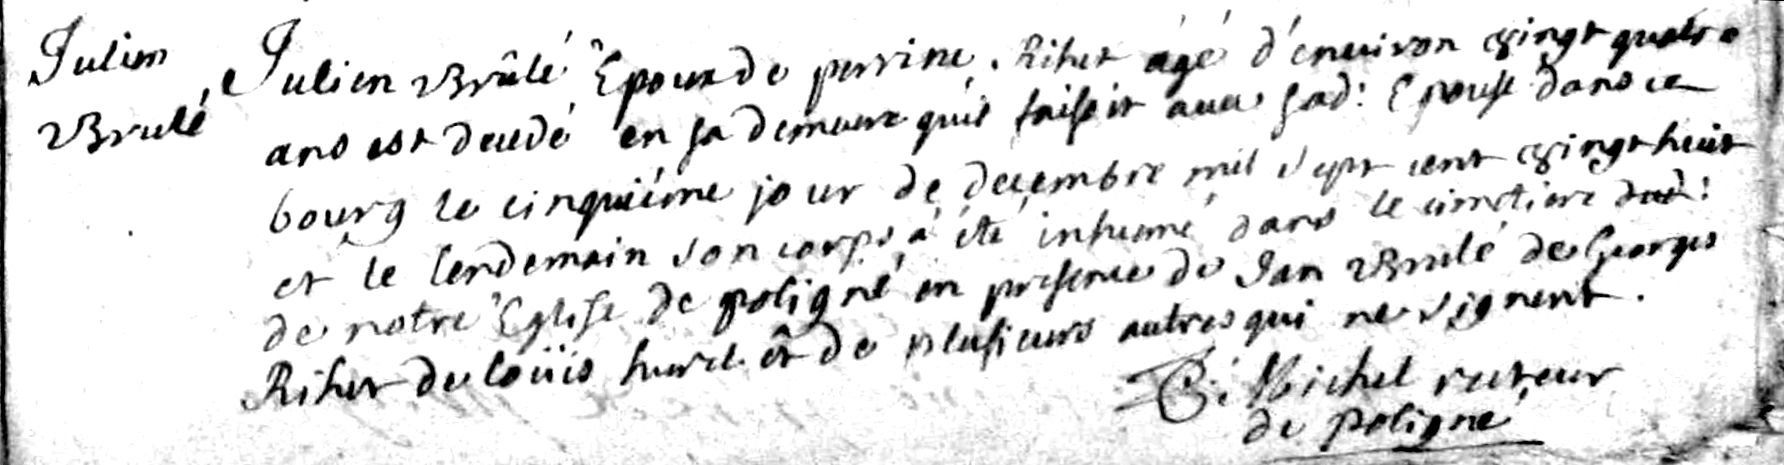 Julien
Brulé
Julien Brûlé Epoux de perrine Riher agé d'enuiron vingt quatre
ans est decedé en sa demeure qu'il faisoit auec sad: Epouse dans ce
bourg le cinquiéme jour de decembre mil sept cent vingt heuit
et le lendemain son corps a été inhumé dans le cimetiere
de notre Eglise de poligné en presence de Jan Brulé de Georges
Riher de loüis hurel et de plusieurs autres qui ne signent.
Michel recteur
de poligné